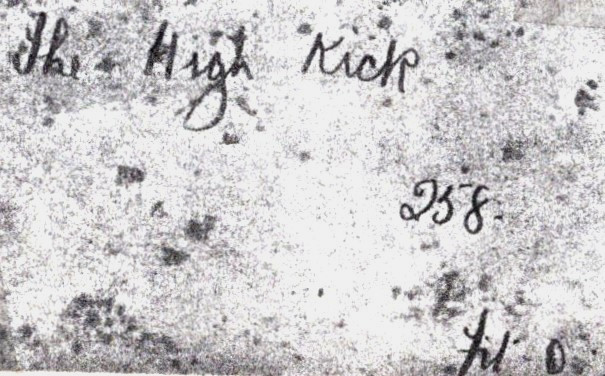 The High Kick
258.